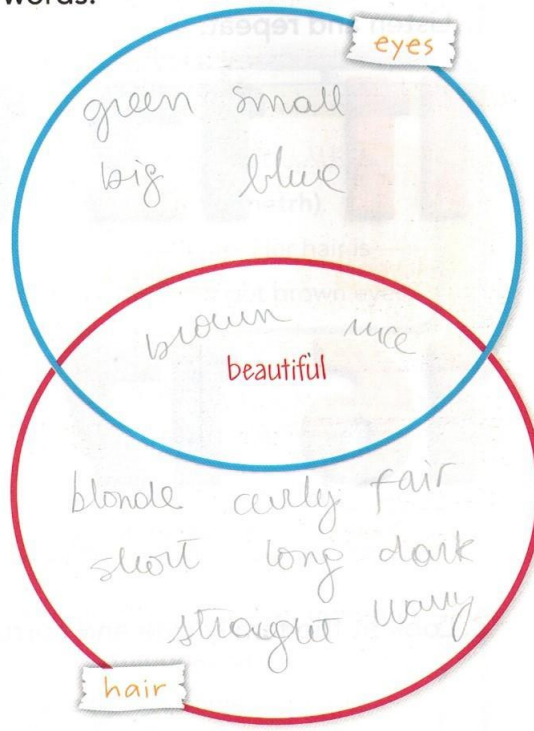 words.
eyes
green small
big blue
brown nice
beautiful
blonde curly fair
short long dark
straight wavy
hair